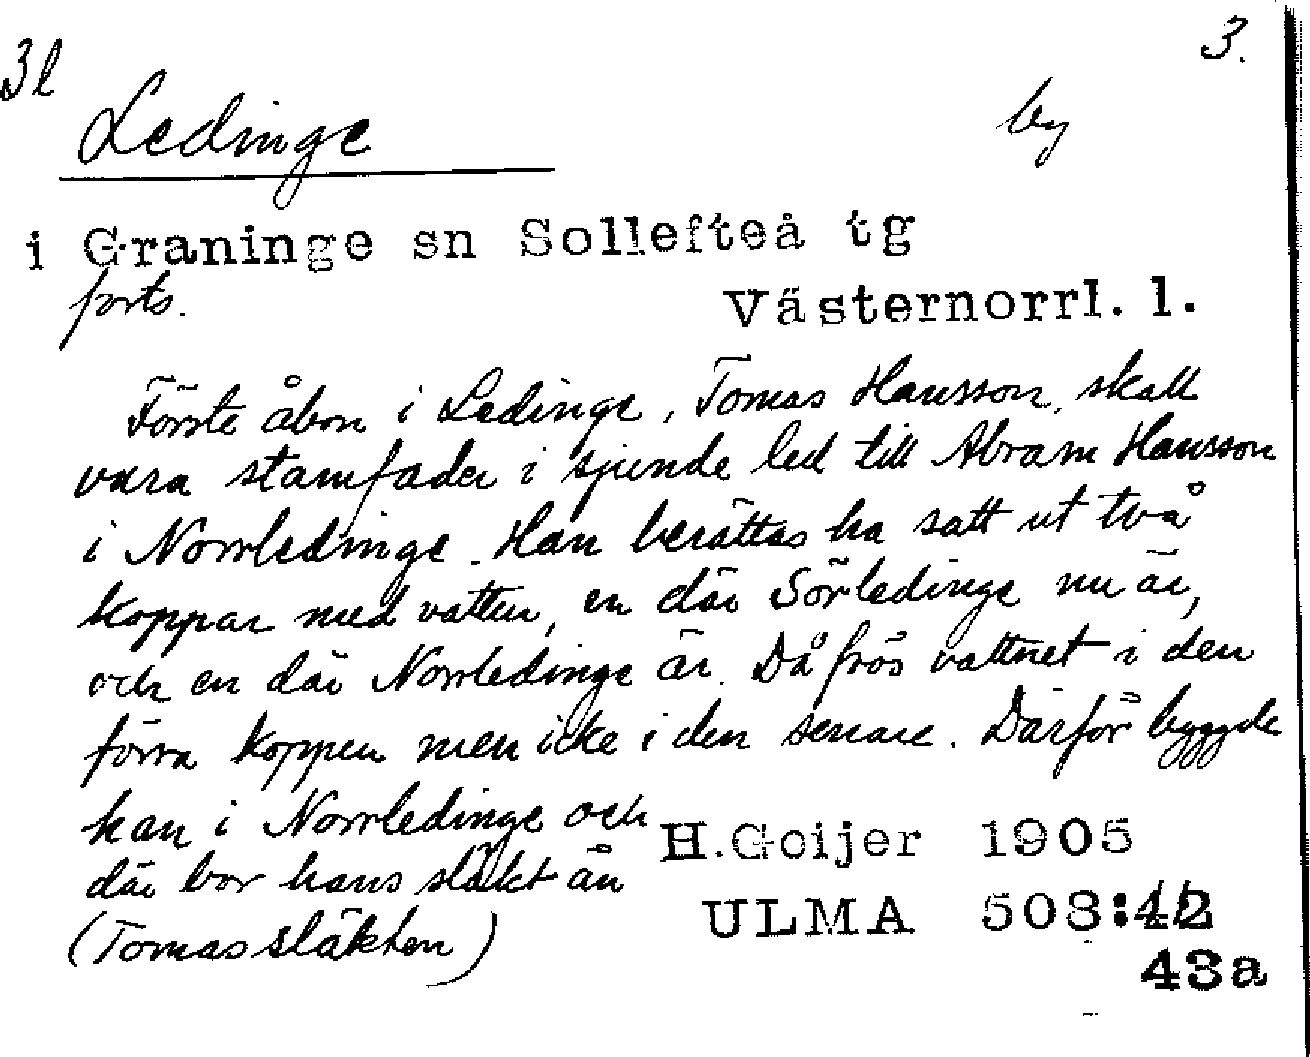 3l
3.
Ledinge
by
i Graninge sn Sollefteå tg
forts.
Västernorrl. l.
Förste åbon i Ledinge, Tomas Hansson, skall
vara stamfader i sjunde led till Abram Hansson
i Norrledinge. Han berättas ha satt ut två
koppar med vatten, en där Sörledinge nu är,
och en där Norrledinge är. Då frös vattnet i den
förra koppen men icke i den senare. Därför byggde
han i Norrledinge och
där bor hans släkt än
(Tomassläkten)
H.Goijer 1905
ULMA 508:42
43a